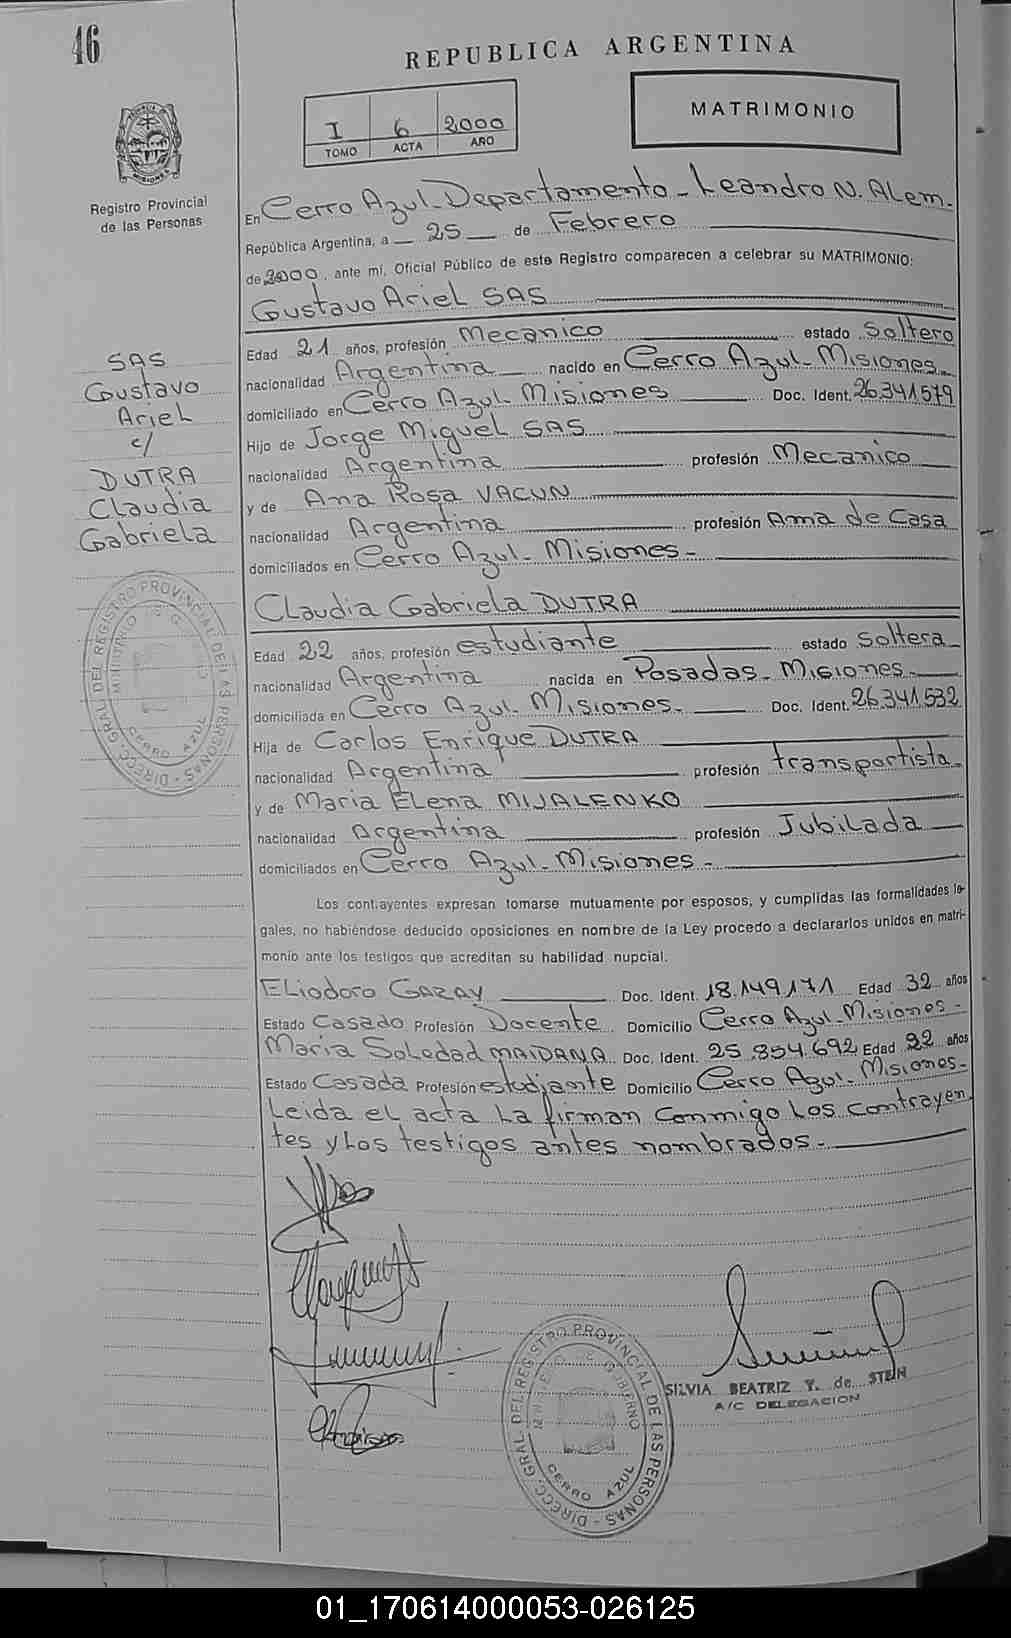 46
REPUBLICA ARGENTINA
I 6 2000
TOMO ACTA AÑO
MATRIMONIO
Registro Provincial
de las Personas
En Cerro Azul - Departamento - Leandro N. Alem -
República Argentina, a 25 de Febrero
de 2000, ante mí, Oficial Público de este Registro comparecen a celebrar su MATRIMONIO:
Gustavo Ariel SAS
Edad 21 años, profesión Mecanico estado Soltero
nacionalidad Argentina nacido en Cerro Azul - Misiones
domiciliado en Cerro Azul - Misiones Doc. Ident. 26.341.579
Hijo de Jorge Miguel SAS
nacionalidad Argentina profesión Mecanico
y de Ana Rosa VACUN
nacionalidad Argentina profesión Ama de Casa
domiciliados en Cerro Azul - Misiones -
SAS
Gustavo
Ariel
c/
DUTRA
Claudia
Gabriela
Claudia Gabriela DUTRA
Edad 22 años, profesión estudiante estado Soltera
nacionalidad Argentina nacida en Posadas - Misiones -
domiciliada en Cerro Azul - Misiones - Doc. Ident. 26.341.532
Hija de Carlos Enrique DUTRA
nacionalidad Argentina profesión transportista
y de Maria Elena MIJALENKO
nacionalidad Argentina profesión Jubilada
domiciliados en Cerro Azul - Misiones -
Los contrayentes expresan tomarse mutuamente por esposos, y cumplidas las formalidades le-
gales, no habiéndose deducido oposiciones en nombre de la Ley procedo a declararlos unidos en matri-
monio ante los testigos que acreditan su habilidad nupcial.
Eliodoro GARAY Doc. Ident. 18.149.171 Edad 32 años
Estado Casado Profesión Docente Domicilio Cerro Azul - Misiones -
Maria Soledad MAIDANA Doc. Ident. 25.854.692 Edad 22 años
Estado Casada Profesión estudiante Domicilio Cerro Azul - Misiones -
Leida el acta la firman conmigo los contrayen
tes y los testigos antes nombrados -
DIRECC. GRAL. DEL REGISTRO PROVINCIAL DE LAS PERSONAS
CERRO AZUL
SILVIA BEATRIZ Y. de STEIN
A/C DELEGACION
DIRECC. GRAL. DEL REGISTRO PROVINCIAL DE LAS PERSONAS
MINISTERIO DE GOBIERNO
CERRO AZUL
01_170614000053-026125